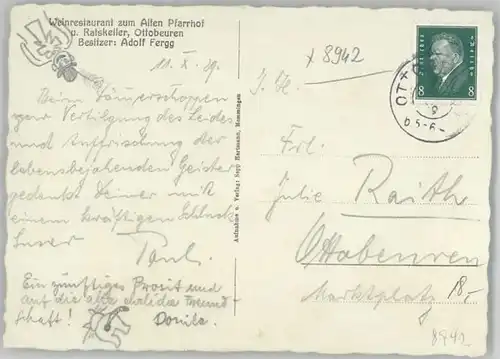 Weinrestaurant zum Alten Pfarrhof
u. Ratskeller, Ottobeuren
Besitzer: Adolf Fergg
11. X. 29.
Beim Dämmerschoppen
zur Vertilgung des Leides
und Auffrischung der
lebensbejahenden Geister
gedenkt Deiner mit
einem kräftigen Schluck
Unser Paul.
Ein zünftiges Prosit und
auf die alte ehrliche Freund-
schaft!
Aufnahme u. Verlag: Sepp Hartmann, Memmingen
x 8942
8 8
b 5-6-
Frl.
Julie Raith
Ottobeuren
Marktplatz
18,-
8942